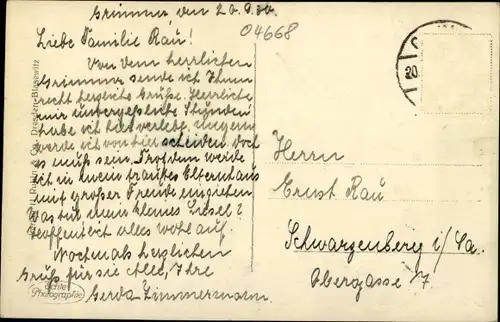 Grimma, den 20.8.30.
04668
Liebe Familie Rau!
Von dem herrlichen
Grimma sende ich Ihnen
recht herzliche Grüße. Herrliche
mir unvergeßliche Stunden
habe ich hier verlebt, ungern
werde ich von hier scheiden doch
es muß sein. Trotzdem werde
ich in mein trautes Elternhaus
mit großer Freude einziehen
Was tut mein kleines Liesel?
Hoffentlich alles wohl auf.
Nochmals herzlichen
Gruß für sie Alle, Ihre
Gerda Zimmermann
Herrn
Ernst Rau
Schwarzenberg i/Sa.
Obergasse 17
20
Dresden-Blasewitz
Echte
Photographie